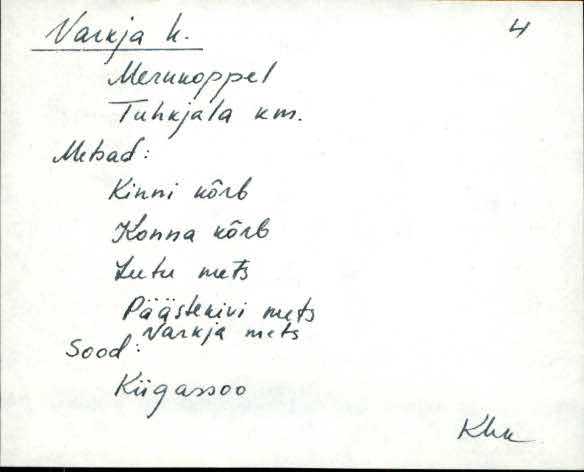 Varkja k. 4
Merukoppel
Tuhkjala km.
Metsad:
Kinni kõrb
Konna kõrb
Lutu mets
Päästekivi mets
Varkja mets
Sood:
Kiigassoo